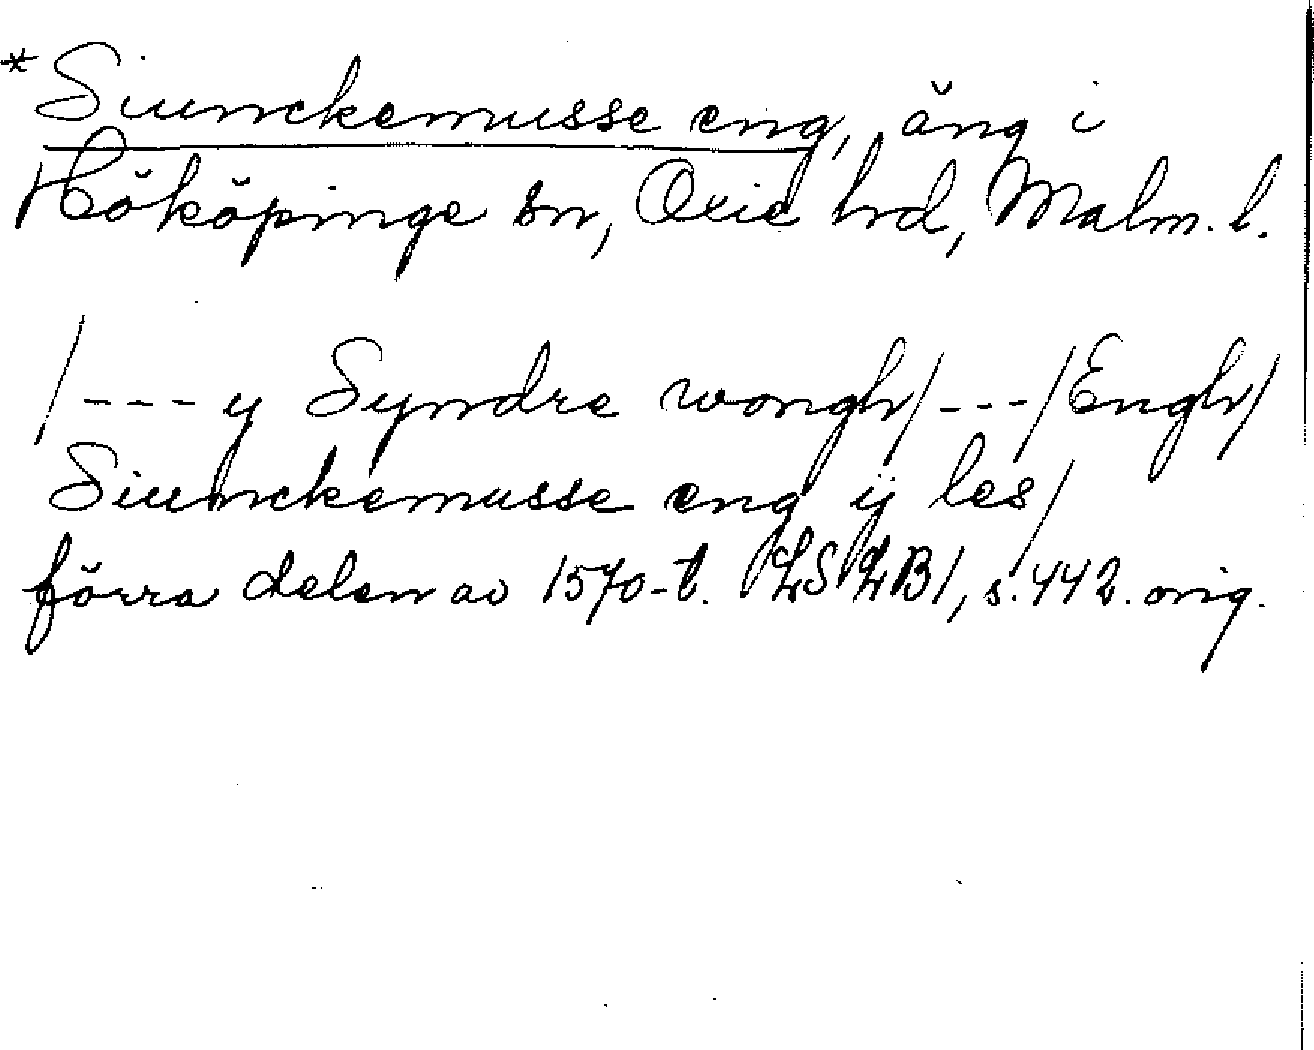 *Siunckemusse eng, äng i
Hököpinge sn, Oxie hd, Malm. l.
/--- y Syndre wongh/---/Engh/
Siunckemusse eng ij les/
förra delen av 1570-t. LSLB1, s. 442. orig.